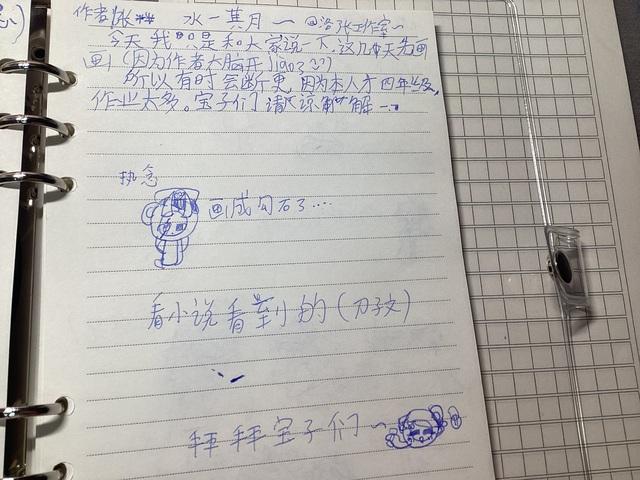 作者张** 水一其月~ @洛张工作室~
今天我只是和大家说一下,这几天先画
画(因为作者大脑开
所以有时会断更,因为本人才四年级,
作业太多。宝子们请谅解解一..
执念
画成勾石了....
看小说看到的(刀子文)
拜拜宝子们~